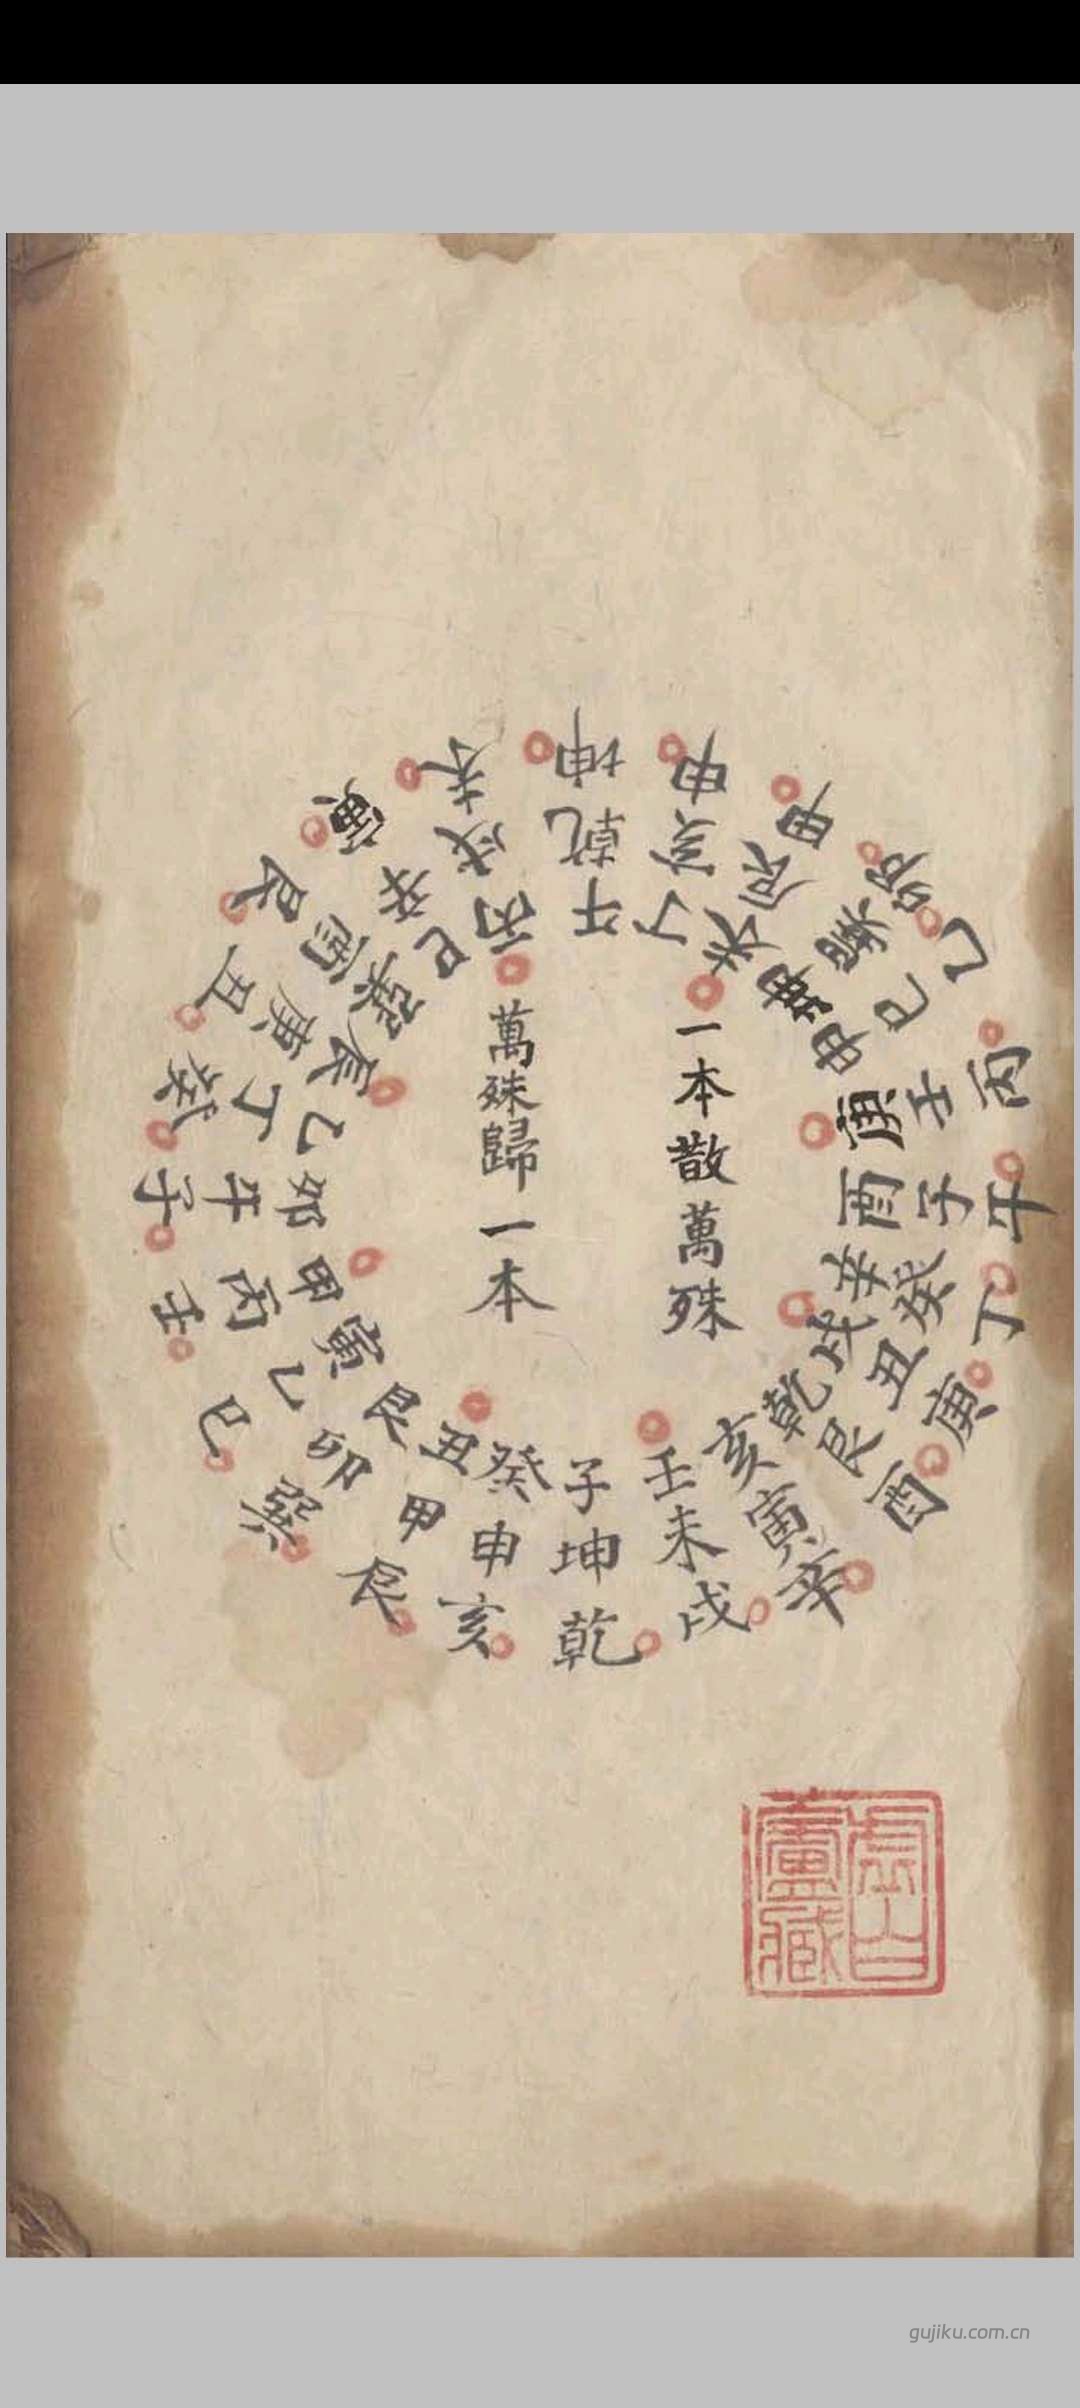 一本散萬殊
萬殊歸一本
午丁未坤申庚酉辛戌乾亥壬子癸丑艮寅甲卯乙辰巽巳丙
乾亥辰巽巳壬子癸丑艮寅未坤申甲卯乙丙午丁庚酉辛戌
坤申甲卯乙丙午丁庚酉辛戌乾亥辰巽巳壬子癸丑艮寅未
虛白
廬藏
gujiku.com.cn